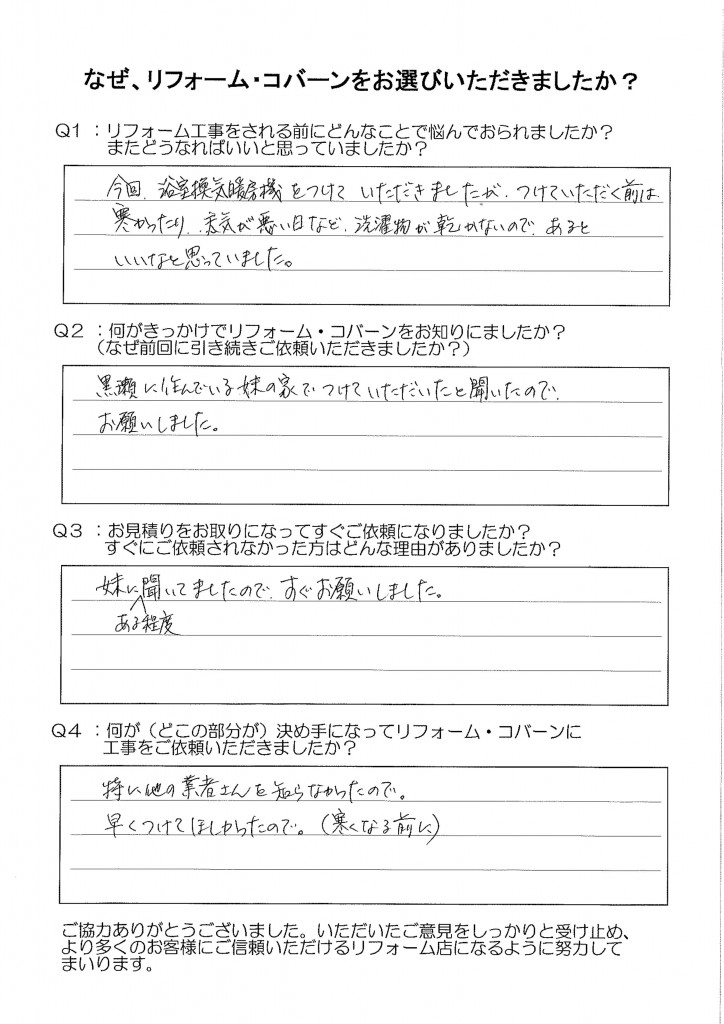 なぜ、リフォーム・コバーンをお選びいただきましたか？
Q1：リフォーム工事をされる前にどんなことで悩んでおられましたか？
またどうなればいいと思っていましたか？
今回、浴室換気暖房機をつけていただきましたが、つけていただく前は、
寒かったり、天気が悪い日など、洗濯物が乾かないので、あると
いいなと思っていました。
Q2：何がきっかけでリフォーム・コバーンをお知りにましたか？
（なぜ前回に引き続きご依頼いただきましたか？）
黒瀬に住んでいる妹の家でつけていただいたと聞いたので、
お願いしました。
Q3：お見積りをお取りになってすぐご依頼になりましたか？
すぐにご依頼されなかった方はどんな理由がありましたか？
妹に聞いてましたので、すぐお願いしました。
ある程度
Q4：何が（どこの部分が）決め手になってリフォーム・コバーンに
工事をご依頼いただきましたか？
特に他の業者さんを知らなかったので。
早くつけてほしかったので。（寒くなる前に）
ご協力ありがとうございました。いただいたご意見をしっかりと受け止め、
より多くのお客様にご信頼いただけるリフォーム店になるように努力して
まいります。